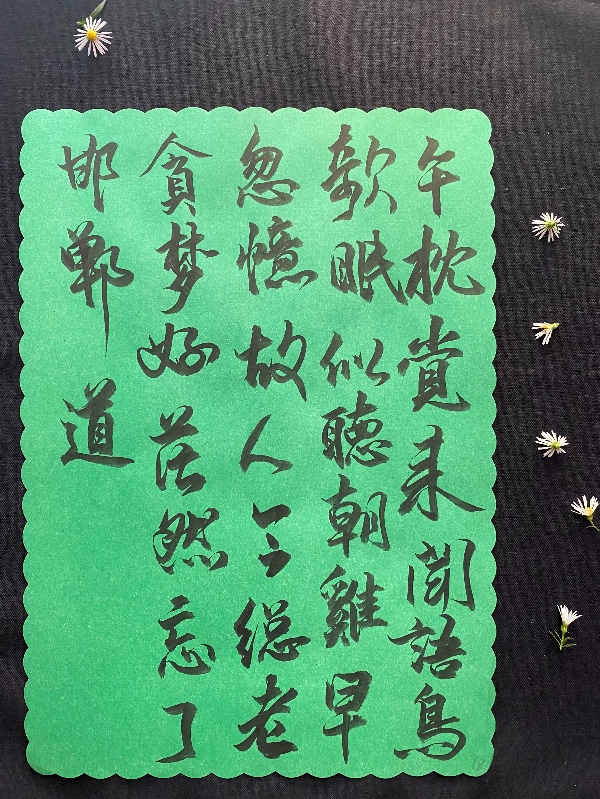 午枕覚来聞語鳥
欹眠似聽朝雞早
忽憶故人今総老
貪梦好茫然忘了
邯鄲道
18